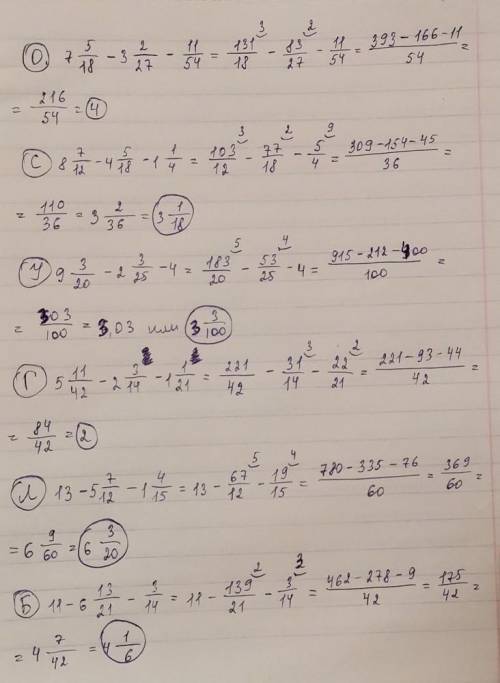 О. 7 5/18 - 3 2/27 - 11/54 = 131/18 (3) - 83/27 (2) - 11/54 = (393-166-11)/54 =
= 216/54 = 4
С 8 7/12 - 4 5/18 - 1 1/4 = 103/12 (3) - 77/18 (2) - 5/4 (9) = (309-154-45)/36 =
= 110/36 = 3 2/36 = 3 1/18
У 9 3/20 - 2 3/25 - 4 = 183/20 (5) - 53/25 (4) - 4 = (915-212-400)/100 =
= 303/100 = 3,03 или 3 3/100
Г 5 11/42 - 2 3/14 - 1 1/21 = 221/42 - 31/14 (3) - 22/21 (2) = (221-93-44)/42 =
= 84/42 = 2
Л 13 - 5 7/12 - 1 4/15 = 13 - 67/12 (5) - 19/15 (4) = (780-335-76)/60 = 369/60 =
= 6 9/60 = 6 3/20
Б 11 - 6 13/21 - 3/14 = 11 - 139/21 (2) - 3/14 (3) = (462-278-9)/42 = 175/42 =
= 4 7/42 = 4 1/6